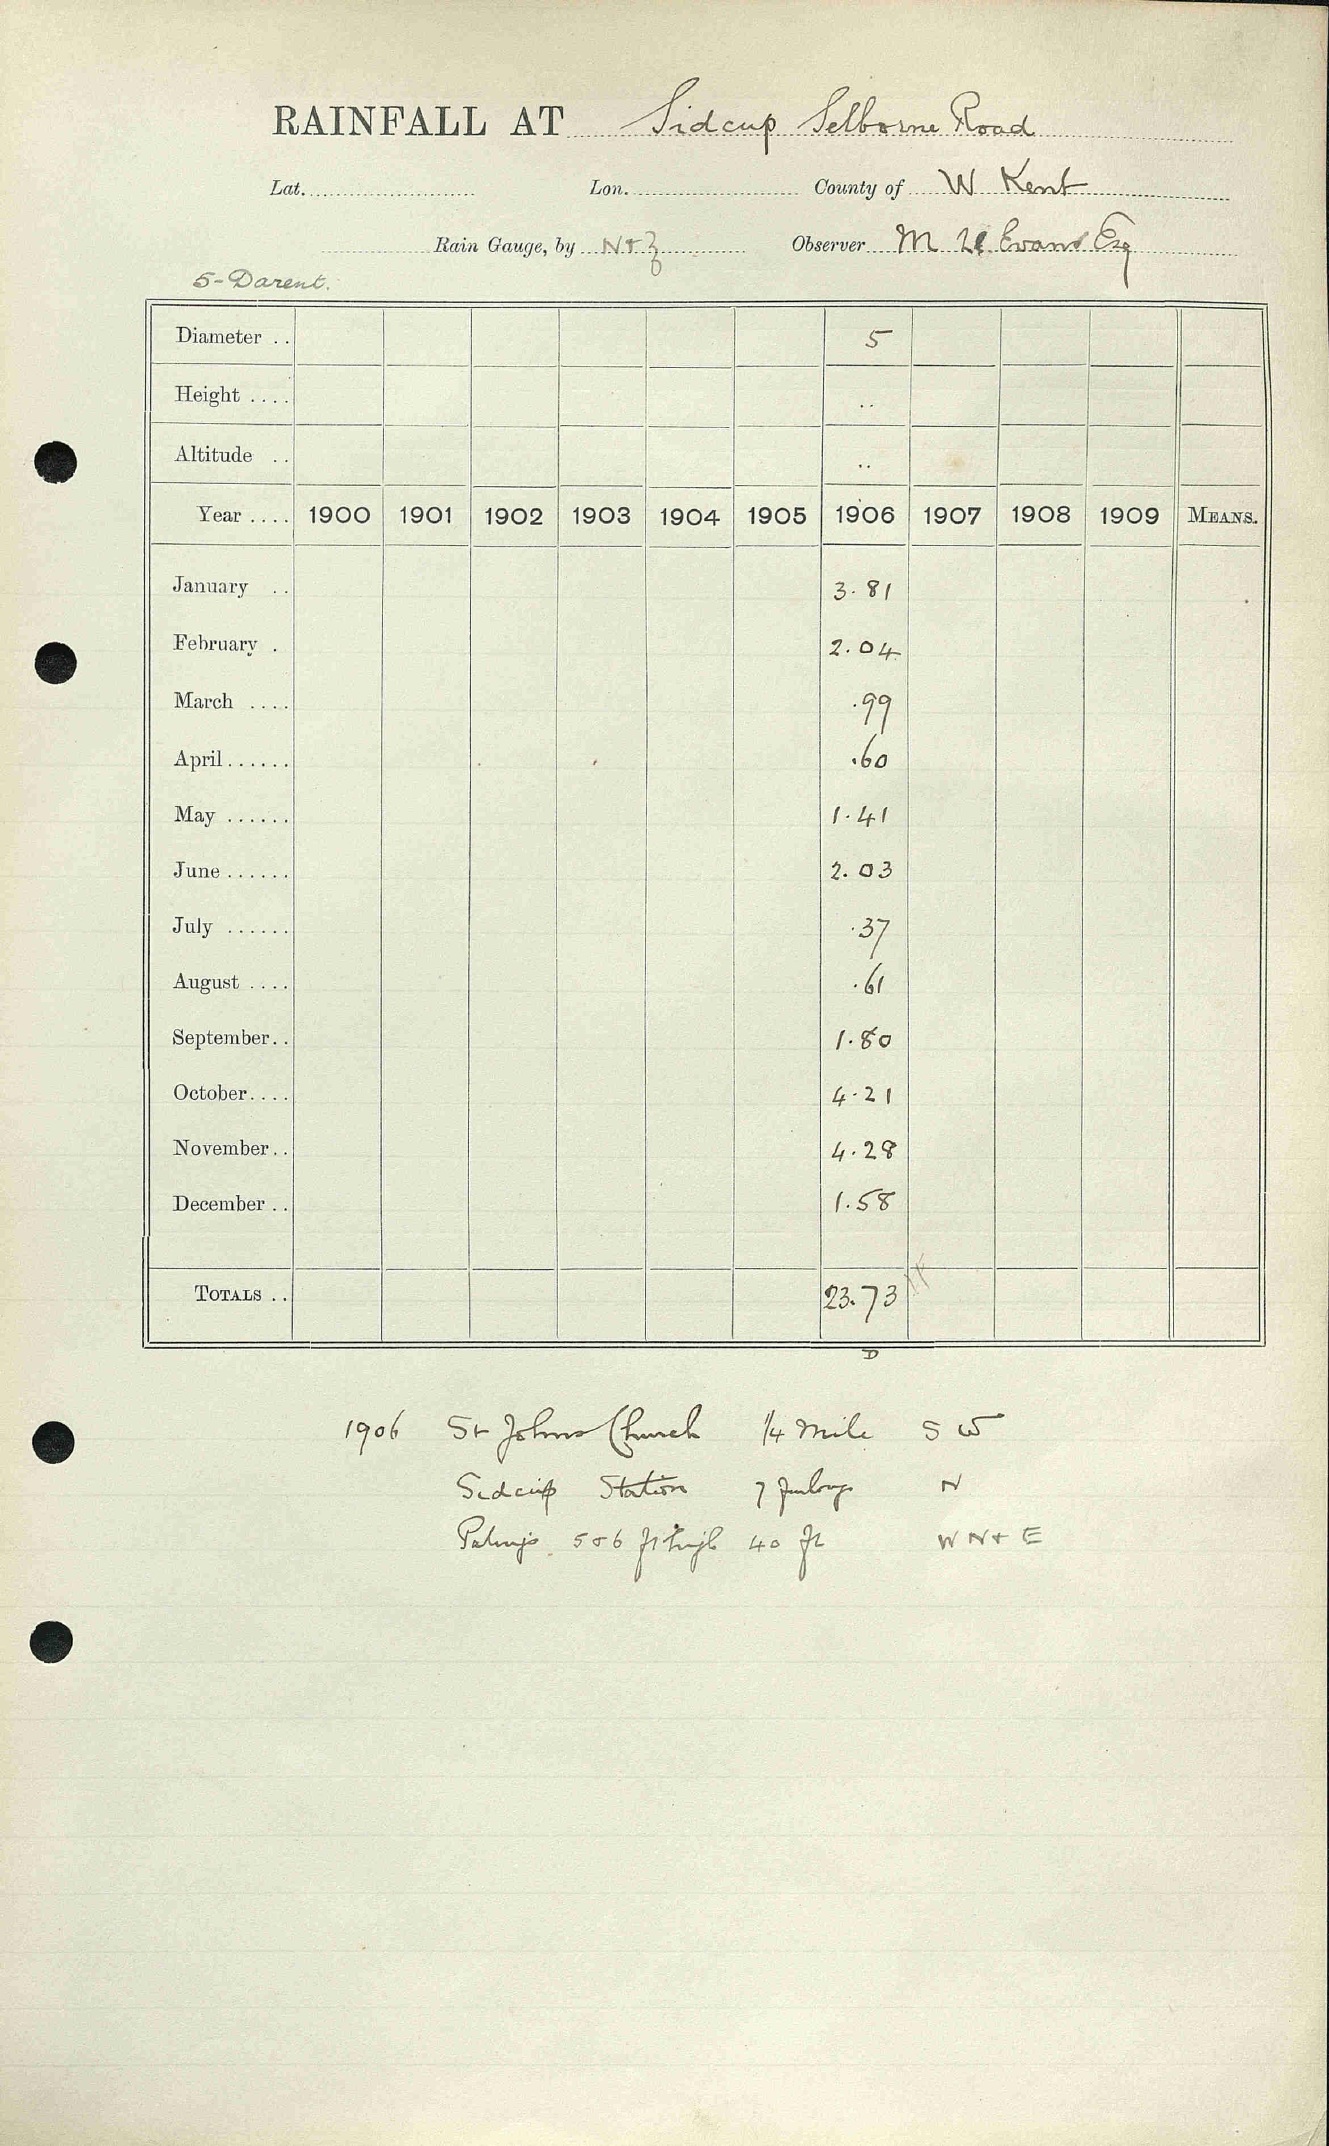 RAINFALL AT Sidcup Selborne Road
Lat. Lon. County of W Kent
Rain Gauge, by N & Z Observer M Evans Esq
5-Darent.
Diameter .. 5
Height .... ..
Altitude .. ..
Year .... 1900 1901 1902 1903 1904 1905 1906 1907 1908 1909 MEANS.
January .. 3.81
February . 2.04
March .... .99
April ...... .60
May ...... 1.41
June ...... 2.03
July ...... .37
August .... .61
September.. 1.80
October.... 4.21
November.. 4.28
December .. 1.58
TOTALS .. 23.73
D
1906 St Johns Church 1/4 Mile S W
Sidcup Station 7 furlongs N
Palings 5 & 6 ft high 40 ft W N & E